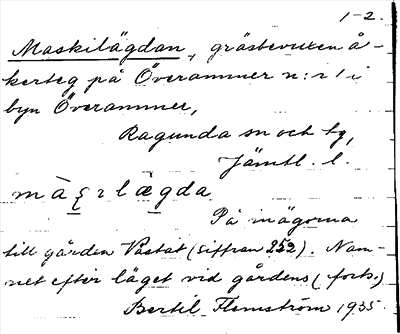 1-2.
Maskilägdan, gräsbevuxen å-
kerteg på Överammer n:r 1 i
byn Överammer,
Ragunda sn och tg,
Jämtl. l.
På inägorna
till gården Västat (siffran 352). Nam-
net efter läget vid gårdens (forts.)
Bertil Flemström 1935.